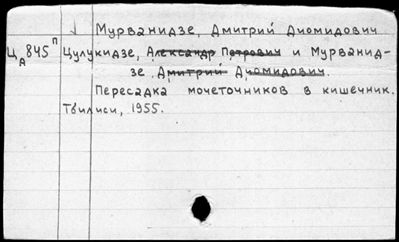 Мурванидзе, Дмитрий Диомидович
ЦД845п Цулукидзе, Александр Петрович и Мурванид-
зе Дмитрий Диомидович.
Пересадка мочеточников в кишечник.
Тбилиси, 1955.